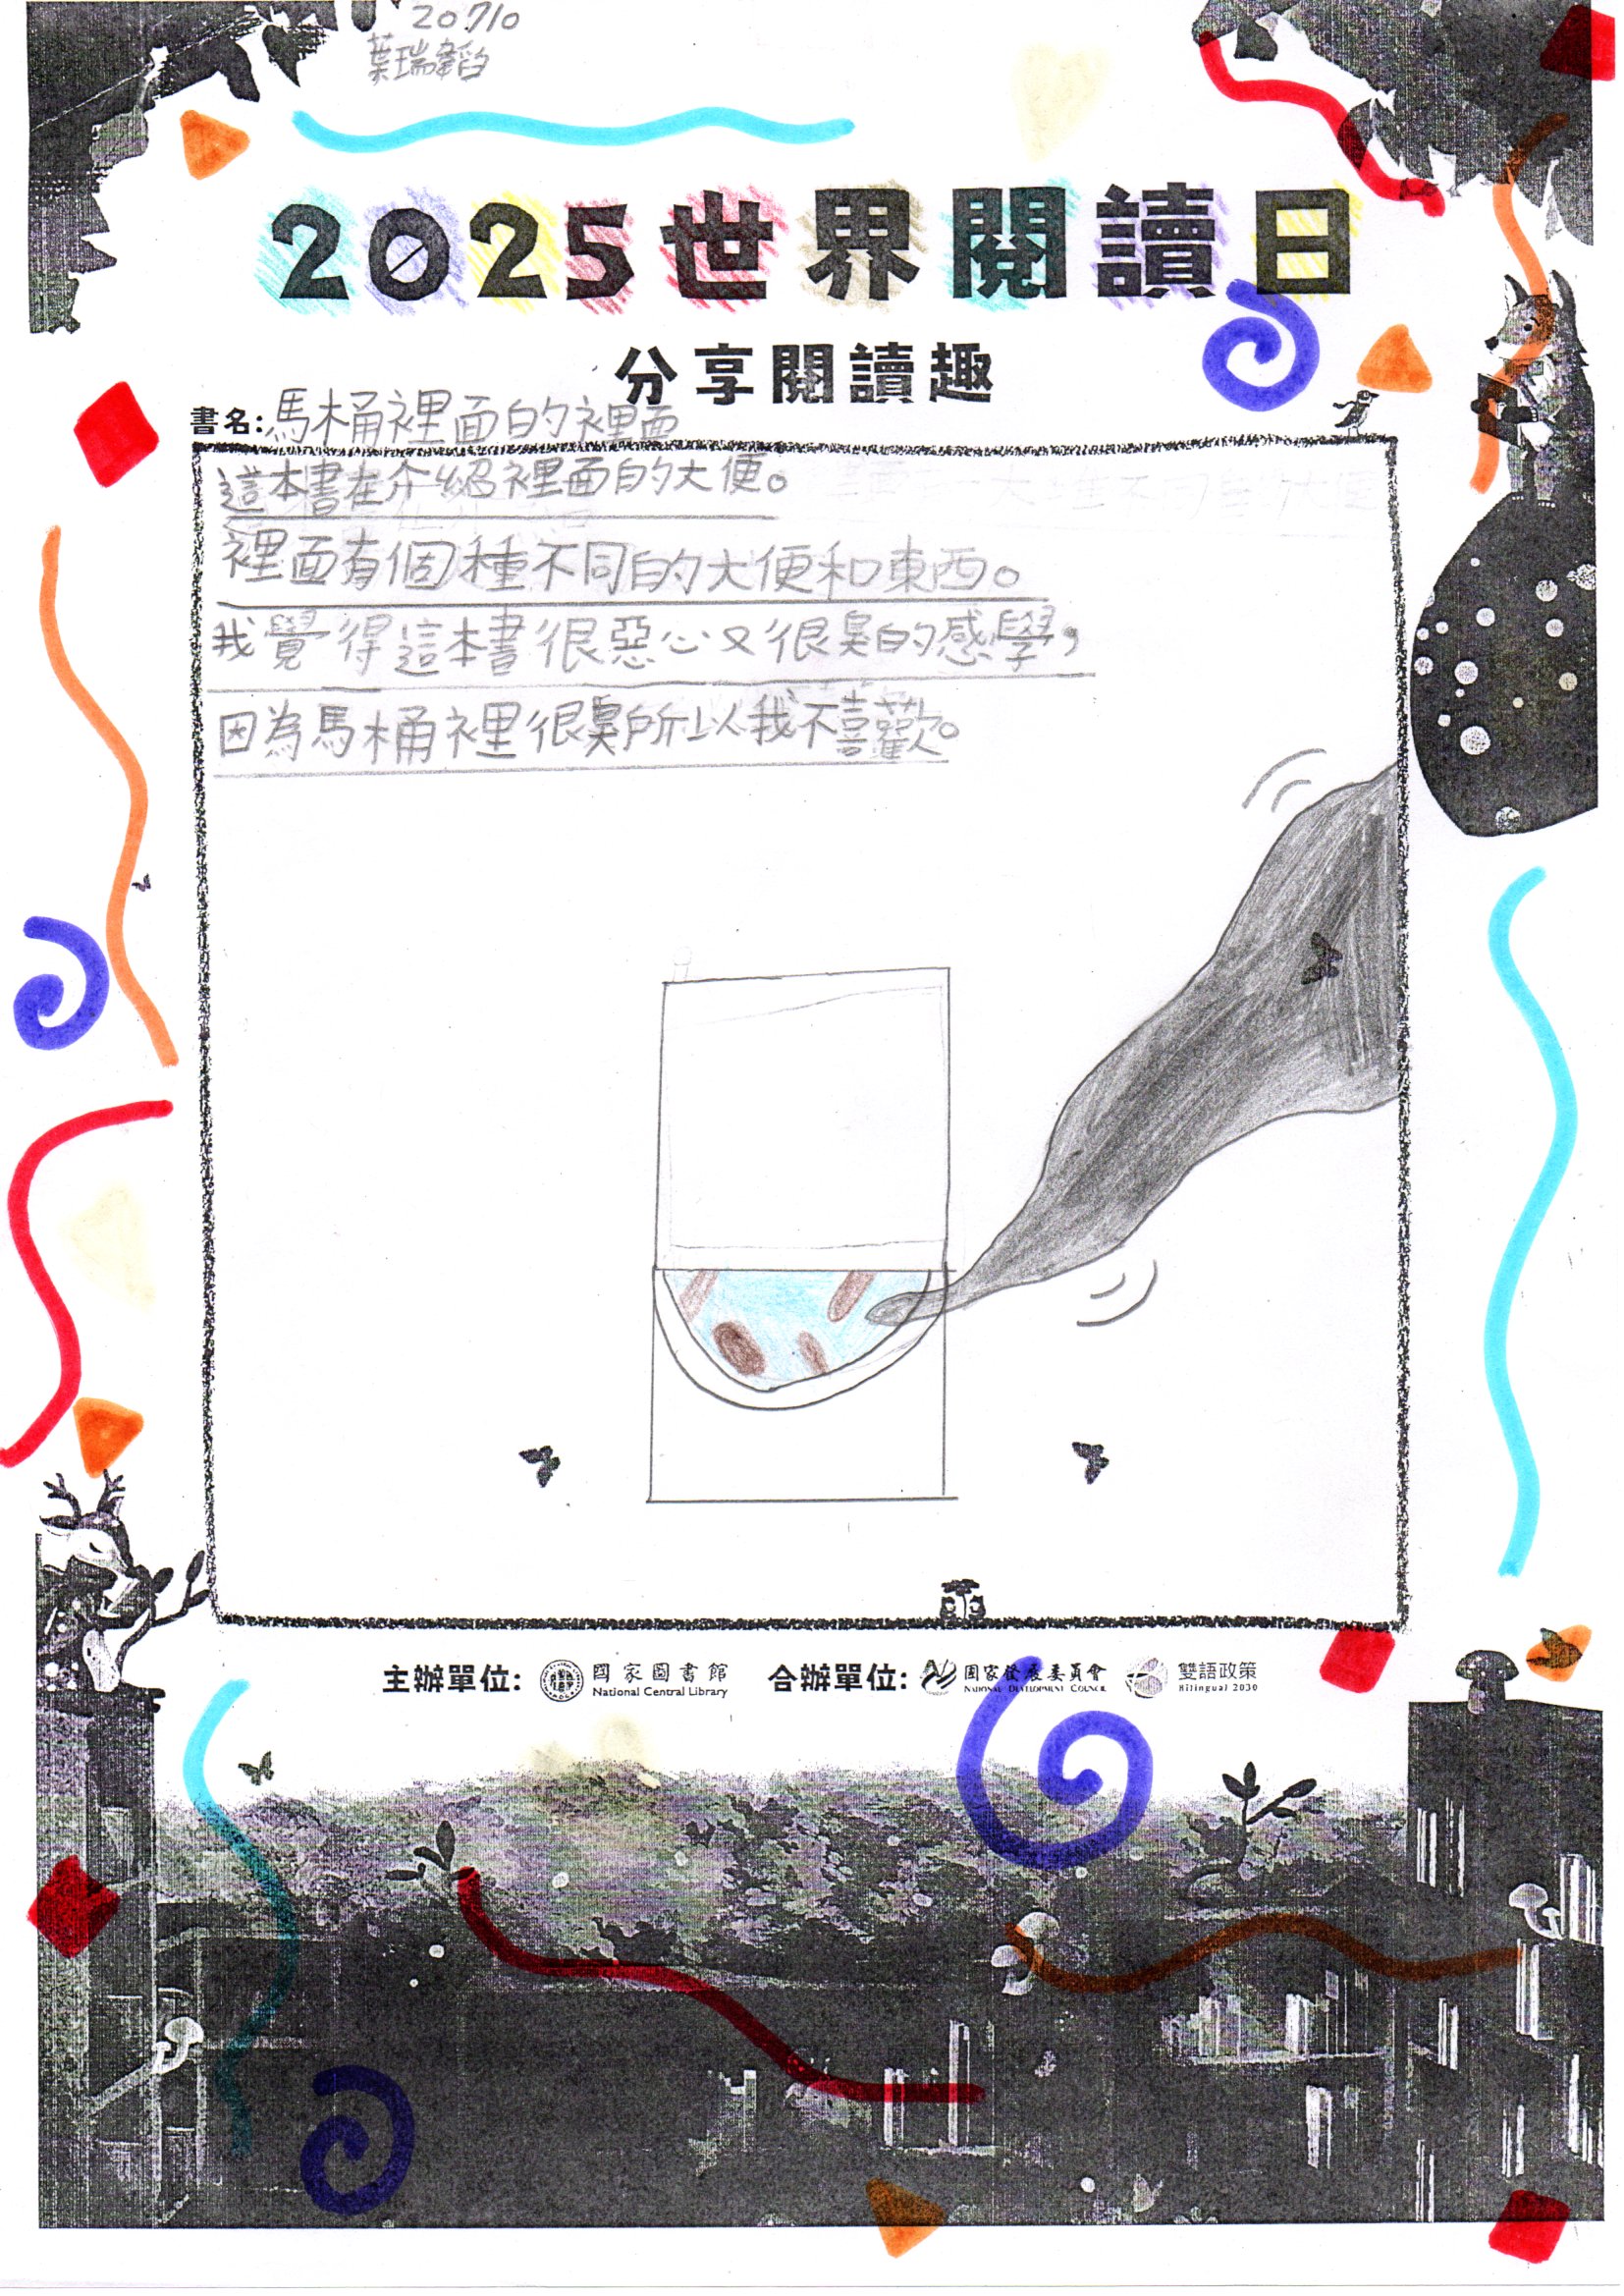 20710
葉瑞韜
2025世界閱讀日
分享閱讀趣
書名:馬桶裡面的裡面
這本書在介紹裡面的大便。
裡面有個種不同的大便和東西。
我覺得這本書很惡心又很臭的感學,
因為馬桶裡很臭所以我不喜歡。
主辦單位: 國家圖書館 National Central Library 合辦單位: 國家發展委員會 National Development Council 雙語政策 Bilingual 2030